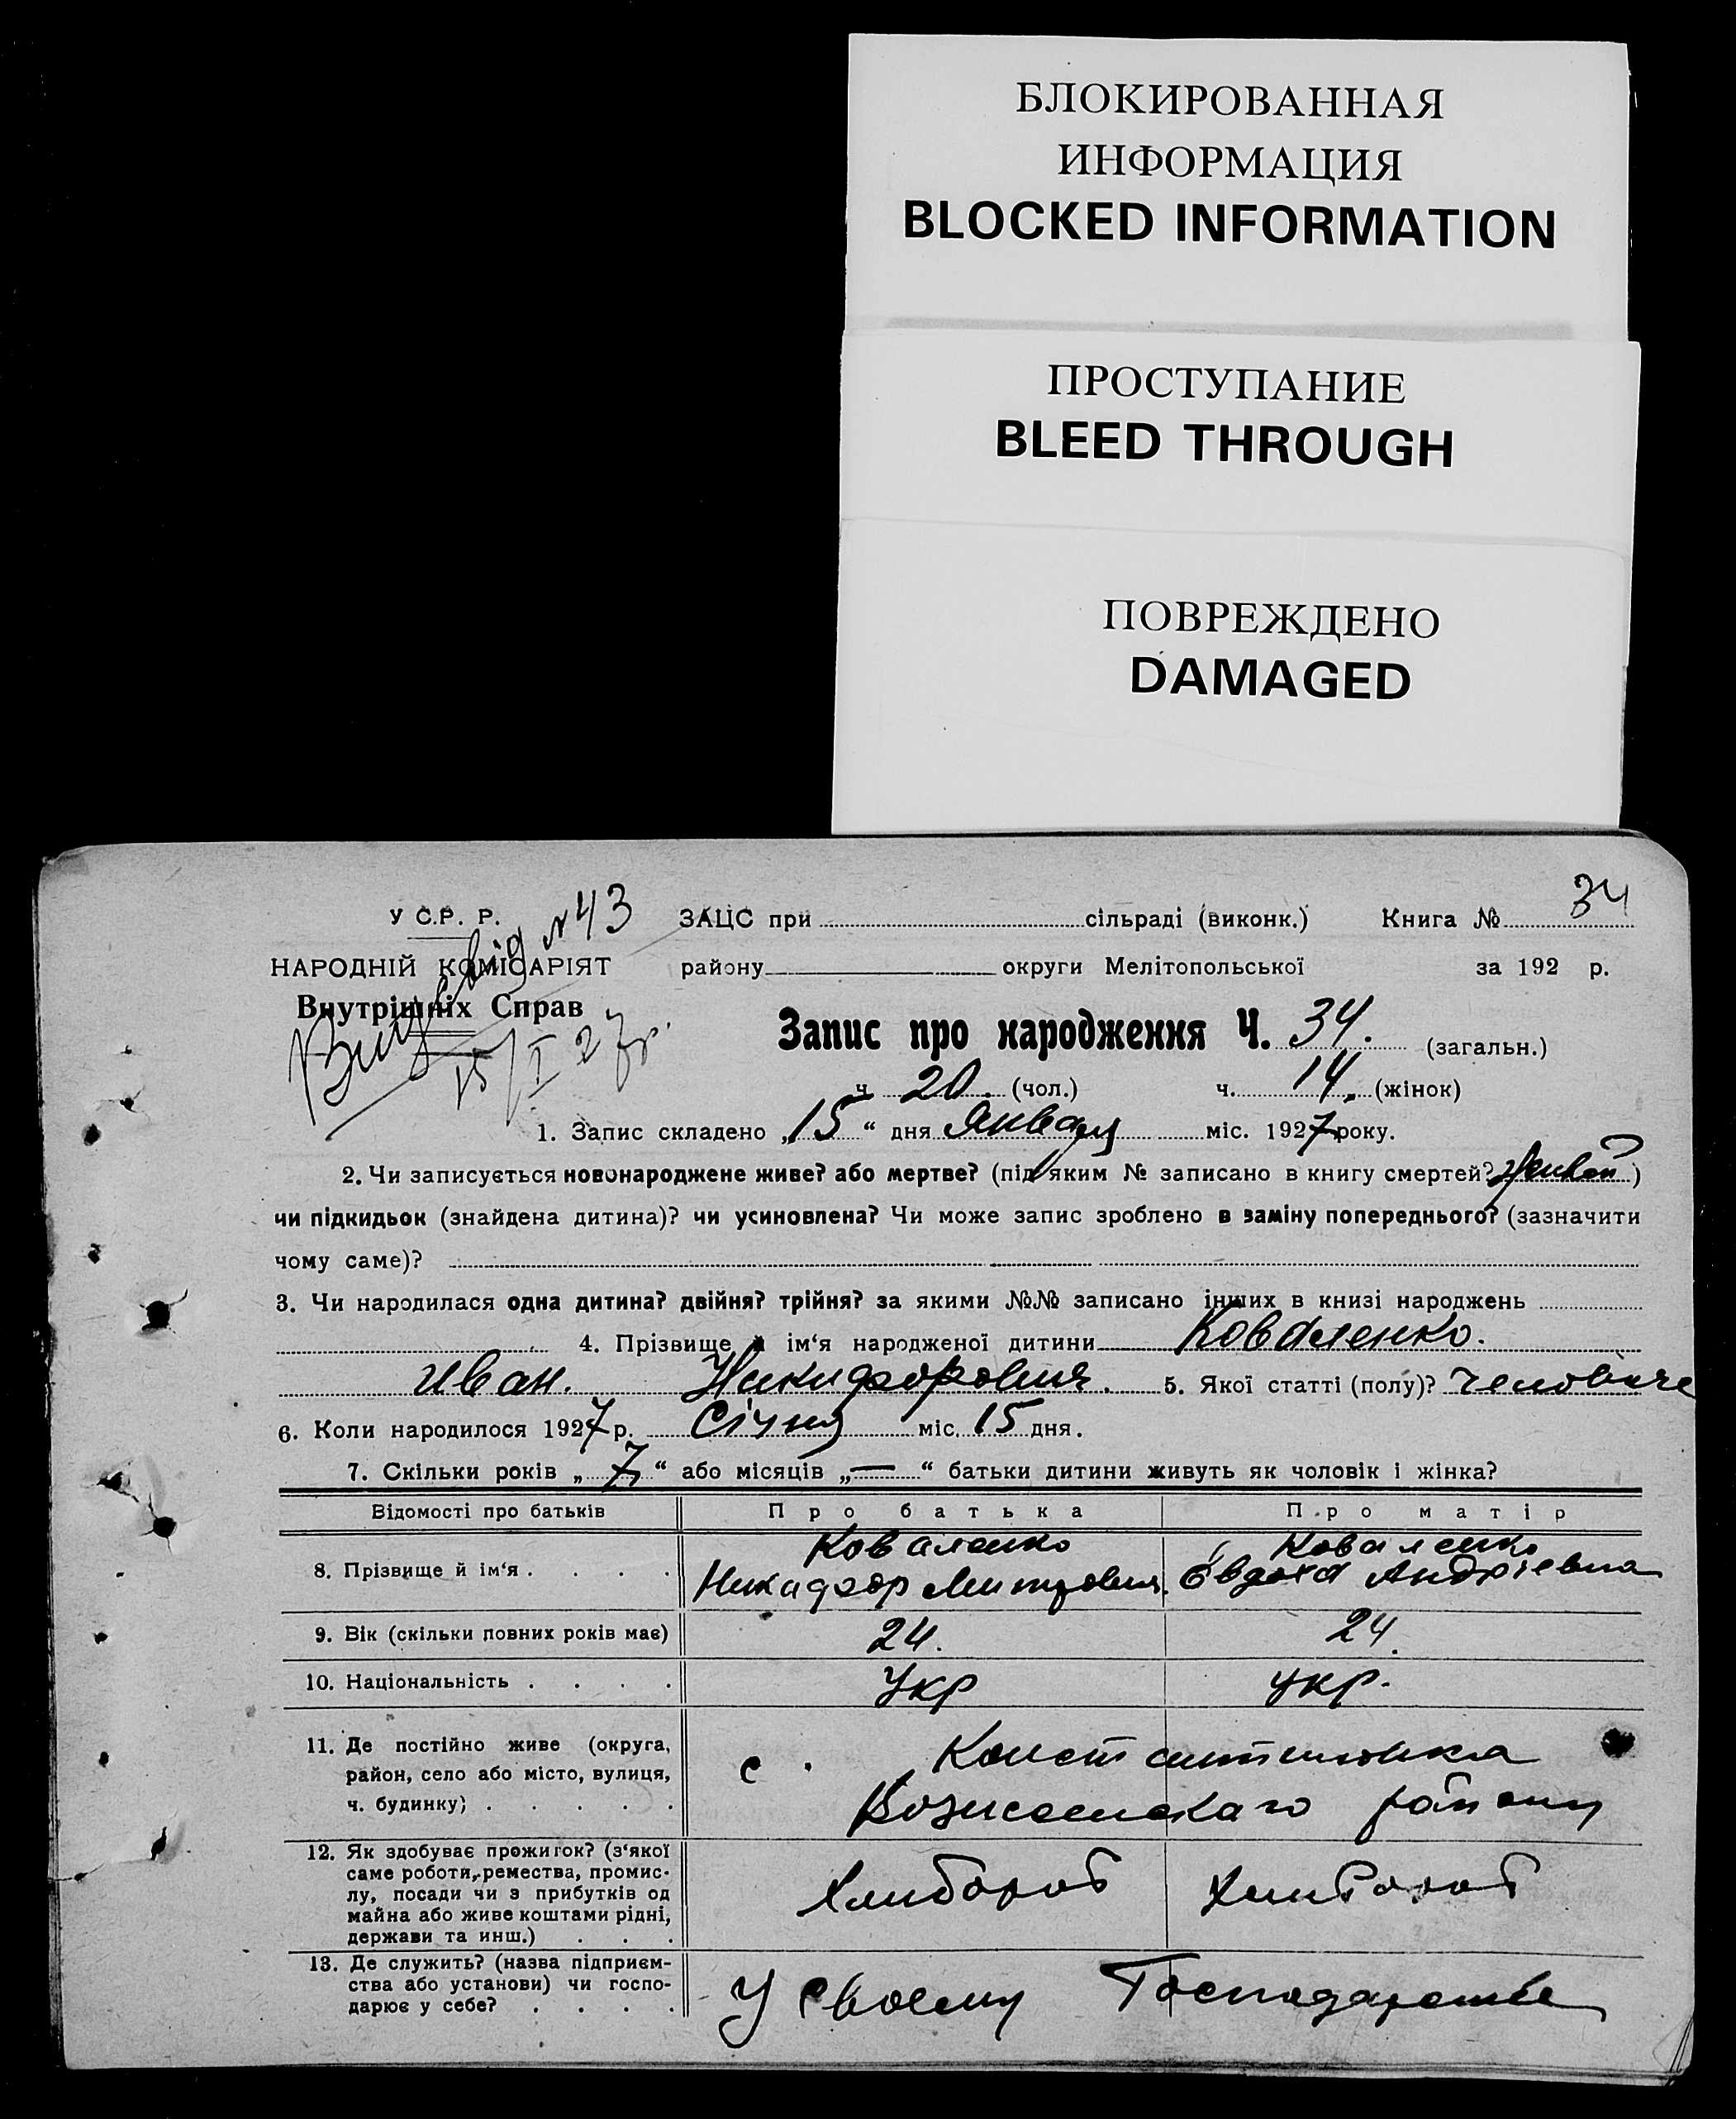 БЛОКИРОВАННАЯ
ИНФОРМАЦИЯ
BLOCKED INFORMATION
ПРОСТУПАНИЕ
BLEED THROUGH
ПОВРЕЖДЕНО
DAMAGED
У С.Р. Р.
НАРОДНІЙ КОМІСАРІЯТ
Внутрішніх Справ
№ 43
15/I 27р.
ЗАЦС при сільраді (виконк.) Книга № 34
району округи Мелітопольської за 192 р.
Запис про народження Ч. 34. (загальн.)
ч 20. (чол.) ч. 14. (жінок)
1. Запис складено „15“ дня Января міс. 1927 року.
2. Чи записується новонароджене живе? або мертве? (під яким № записано в книгу смертей? живой)
чи підкидьок (знайдена дитина)? чи усиновлена? Чи може запис зроблено в заміну попереднього? (зазначити
чому саме)?
3. Чи народилася одна дитина? двійня? трійня? за якими №№ записано інших в книзі народжень
4. Прізвище й ім‘я народженої дитини Коваленко.
Иван. Никифорович. 5. Якої статті (полу)? Человіче
6. Коли народилося 1927 р. Січня міс. 15 дня.
7. Скільки років „7“ або місяців „—“ батьки дитини живуть як чоловік і жінка?
Відомості про батьків Про батька Про матір
8. Прізвище й ім‘я . . . . Коваленко Никифор Коваленко Евдокія Андріевна
9. Вік (скільки повних років має) 24. 24.
10. Національність . . . . Укр укр.
11. Де постійно живе (округа,
район, село або місто, вулиця,
ч. будинку) . . . . .
с. Константиновка
Вознесенскаго району
12. Як здобуває прожиток? (з‘якої
саме роботи, ремества, промис-
лу, посади чи з прибутків од
майна або живе коштами рідні,
держави та инш.) . . .
Хлибороб Хлибороб
13. Де служить? (назва підприєм-
ства або установи) чи госпо-
дарює у себе? . . . .
У своему Господарстве